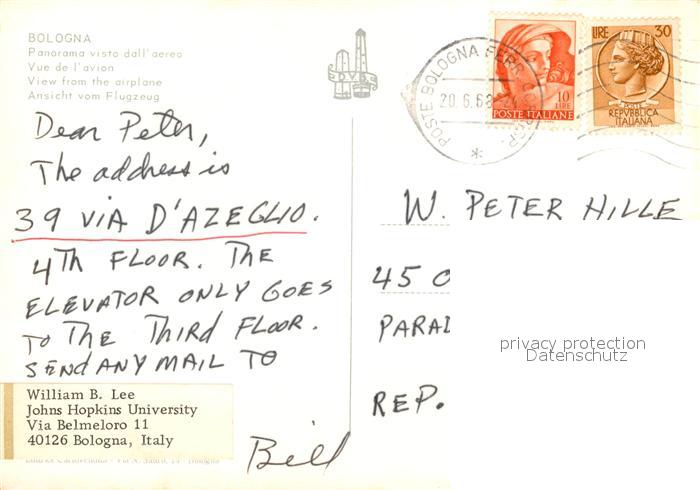 BOLOGNA
Panorama visto dall'aereo
Vue de l'avion
View from the airplane
Ansicht vom Flugzeug
Dear Peter,
The address is
39 VIA D'AZEGLIO.
4TH FLOOR. THE
ELEVATOR ONLY GOES
TO THE THIRD FLOOR.
SEND ANY MAIL TO
William B. Lee
Johns Hopkins University
Via Belmeloro 11
40126 Bologna, Italy
Bill
D.V.B.
POSTE BOLOGNA FERR
20.6.6
10
LIRE
POSTE ITALIANE
LIRE 30
POSTE
REPVBBLICA
ITALIANA
W. PETER HILLE
45
PARA
REP.
privacy protection
Datenschutz